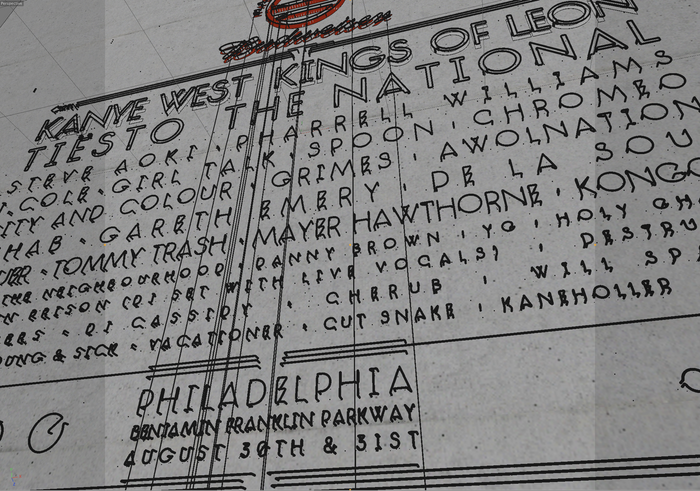 Budweiser
KANYE WEST KINGS OF LEON
TIËSTO THE NATIONAL
STEVE AOKI · PHARRELL WILLIAMS
COLE · GIRL TALK · SPOON · CHROMEO
ITY AND COLOUR · GRIMES · AWOLNATION
HAB · GARETH EMERY · DE LA SOU
TOMMY TRASH · MAYER HAWTHORNE · KONGO
THE NEIGHBOURHOOD · DANNY BROWN · YG · HOLY GH
SET WITH LIVE VOCALS) · DESTRU
DJ CASSIDY · CHERUB · WILL SPA
OUNG & SICK · VACATIONER · CUT SNAKE · KANEHOLLER
PHILADELPHIA
BENJAMIN FRANKLIN PARKWAY
AUGUST 30TH & 31ST